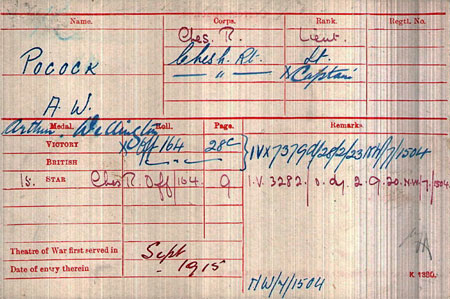 Name. Corps. Rank. Regtl. No.
Ches. R. Lieut.
Pocock Chesh. Rt. Lt.
— " — X Captain
A. W.
Arthur Wellington
Medal. Roll. Page. Remarks.
VICTORY X Off 164 28c IVX7379d/28/2/23 NW/7/1504
BRITISH — " —
15 STAR Ches R. Off 164. 9 I.V. 3282. 2.9.20. N.W/7/1504.
Theatre of War first served in Sept
Date of entry therein - 1915
K 1380.
NW/7/1504